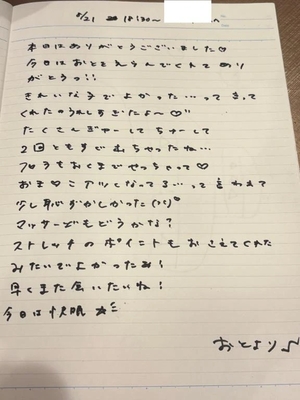 8/21 18:30〜
本日はありがとうございました♡
今日はおとをえらんでくれてあり
がとうっ!!
きれいな子でよかった…って言って
くれたのうれしすぎたよ〜♡
たくさんぎゅーしてちゅーして
2回ともすごむちゃったね…
フロもおくまでやっちゃって♡
おま○こアツくなってる…って言われて
少し恥ずかしかった
マッサージもどうかな?
ストレッチのポイントもおさえてくれた
みたいでよかったみ!
早くまた会いたいね!
今日は快眠
おとより